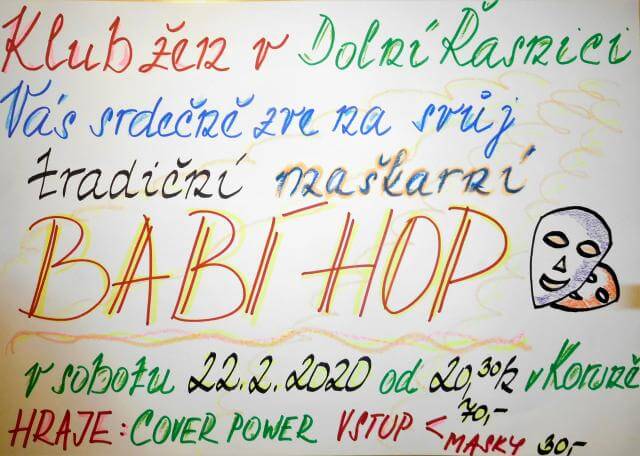 Klub žen v Dolní Řasnici
Vás srdečně zve na svůj
tradiční maškarní
BABÍ HOP
v sobotu 22.2.2020 od 20,30h v Koruně
HRAJE: COVER POWER VSTUP < 70,-
MASKY 30,-